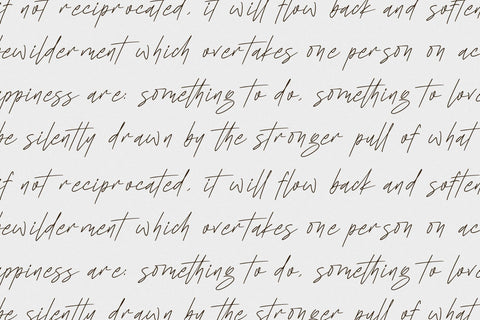 if not reciprocated, it will flow back and soften
bewilderment which overtakes one person on ac
appiness are: something to do, something to love
be silently drawn by the stronger pull of what
if not reciprocated, it will flow back and soften
bewilderment which overtakes one person on ac
appiness are: something to do, something to love
be silently drawn by the stronger pull of what